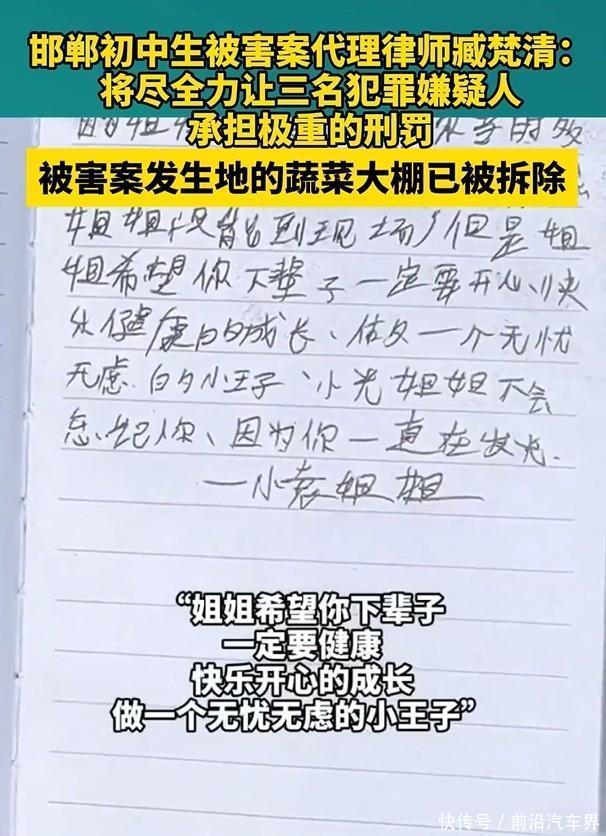 邯郸初中生被害案代理律师臧梵清：
将尽全力让三名犯罪嫌疑人
承担极重的刑罚
被害案发生地的蔬菜大棚已被拆除
姐姐没能到现场，但是姐
姐希望你下辈子一定要开心、快
乐健康的成长、做一个无忧
无虑的小王子、小光姐姐不会
忘记你、因为你一直在发光.
—小袁姐姐
“姐姐希望你下辈子
一定要健康
快乐开心的成长
做一个无忧无虑的小王子”
快传号／前沿汽车界